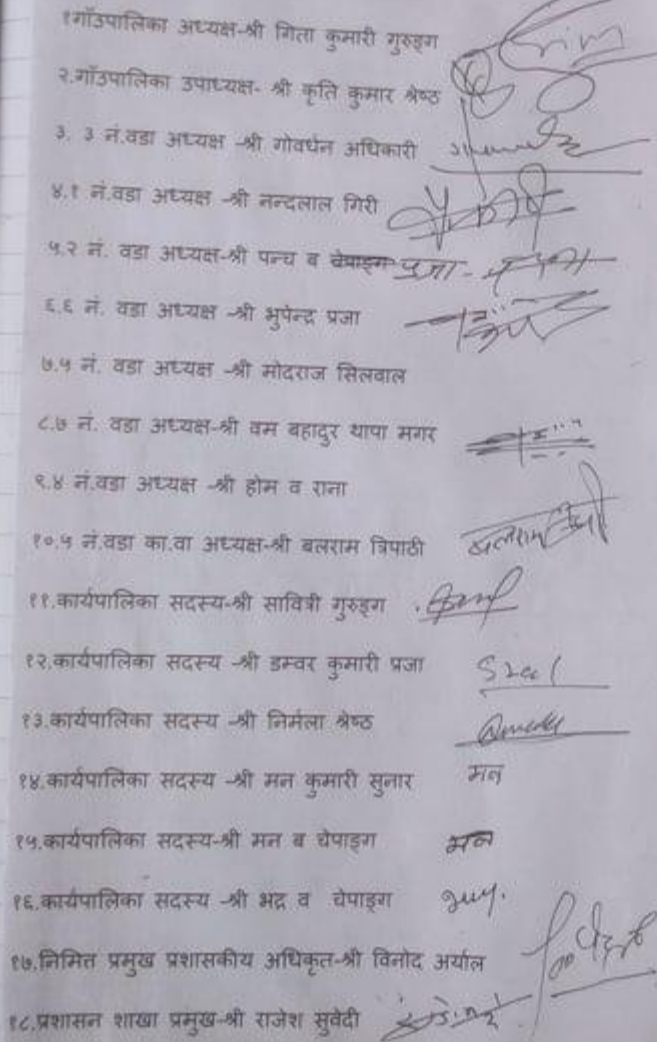 १गाँउपालिका अध्यक्ष-श्री गिता कुमारी गुरुङ्ग
२.गाँउपालिका उपाध्यक्ष- श्री कृति कुमार श्रेष्ठ
३. ३ नं.वडा अध्यक्ष -श्री गोवर्धन अधिकारी
४.१ नं.वडा अध्यक्ष -श्री नन्दलाल गिरी
५.२ नं. वडा अध्यक्ष-श्री पन्च ब चेपाङ्ग प्रजा
६.६ नं. वडा अध्यक्ष -श्री भुपेन्द्र प्रजा
७.५ नं. वडा अध्यक्ष -श्री मोदराज सिलवाल
८.७ नं. वडा अध्यक्ष-श्री वम बहादुर थापा मगर
९.४ नं.वडा अध्यक्ष -श्री होम व राना
१०.५ नं.वडा का.वा अध्यक्ष-श्री बलराम त्रिपाठी बलराम
११.कार्यपालिका सदस्य-श्री सावित्री गुरुङ्ग
१२.कार्यपालिका सदस्य -श्री डम्वर कुमारी प्रजा
१३.कार्यपालिका सदस्य -श्री निर्मला श्रेष्ठ
१४.कार्यपालिका सदस्य -श्री मन कुमारी सुनार मन
१५.कार्यपालिका सदस्य-श्री मन ब चेपाङ्ग मन
१६.कार्यपालिका सदस्य -श्री भद्र व चेपाङ्ग
१७.निमित प्रमुख प्रशासकीय अधिकृत-श्री विनोद अर्याल
१८.प्रशासन शाखा प्रमुख-श्री राजेश सुवेदी